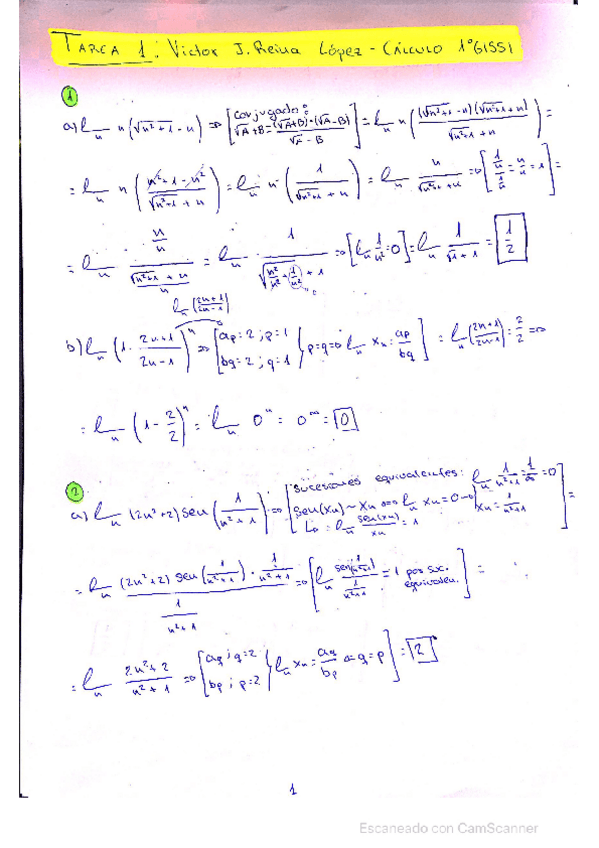 TAREA 1: Victor J. Reina López - CÁLCULO 1º GISSI
1
a) lim_n n(√(n²+1) - n) ⇒ [Conjugado: √A+B = (√A+B)·(√A-B) / (√A - B)] = lim_n n( (√(n²+1) - n)(√(n²+1) + n) / (√(n²+1) + n) ) =
= lim_n n( (n²+1-n²) / (√(n²+1) + n) ) = lim_n n·( 1 / (√(n²+1) + n) ) = lim_n n / (√(n²+1) + n) ⇒ [ (1/n)/(1/n) = n/n = 1 ] =
= lim_n (n/n) / ((√(n²+1) + n)/n) = lim_n 1 / (√(n²/n² + 1/n²) + 1) ⇒ [lim_n 1/n² = 0] = lim_n 1/(√1 + 1) = 1/2
lim_n (2n+1 / 2n-1)
b) lim_n (1 - (2n+1)/(2n-1))^n ⇒ [ap = 2; p = 1
bq = 2; q = 1 } p = q ⇒ lim_n xn = ap/bq] = lim_n (2n+1 / 2n-1) = 2/2 ⇒
= lim_n (1 - 2/2)^n = lim_n 0^n = 0^∞ = 0
2
a) lim_n (2n²+2) sen(1/(n²+1)) ⇒ [sucesiones equivalentes: lim_n 1/(n²+1) = 1/∞ = 0
sen(xn) ~ xn ⇔ lim_n xn = 0 → xn = 1/(n²+1)
↳ = lim_n sen(xn)/xn = 1 ] =
= lim_n (2n²+2) sen(1/(n²+1)) · 1/(n²+1) / (1/(n²+1)) ⇒ [lim_n sen(1/(n²+1)) / (1/(n²+1)) = 1 por suc. equivalen.] =
= lim_n (2n²+2)/(n²+1) ⇒ [aq; q = 2
bp; p = 2 } lim_n xn = aq/bp ⇔ q = p] = 2
1
Escaneado con CamScanner